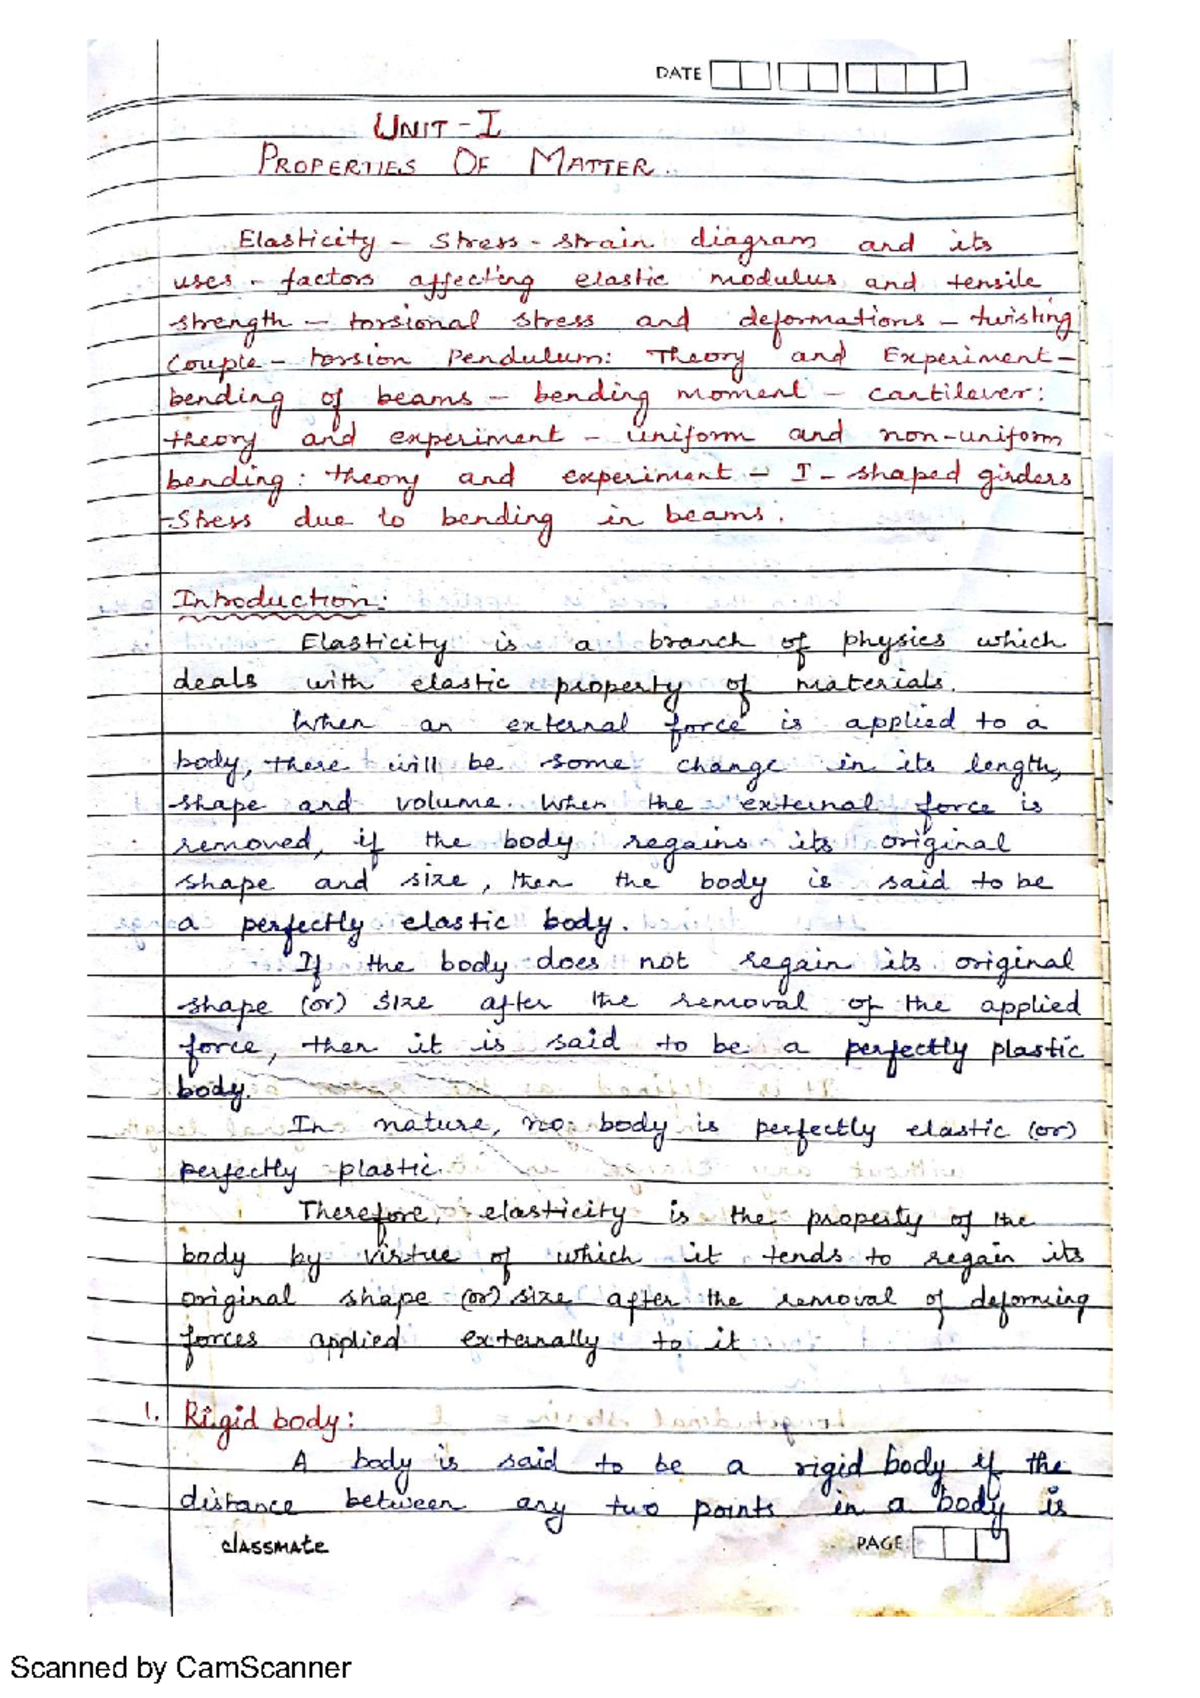 DATE
UNIT - I
PROPERTIES OF MATTER.
Elasticity - Stress - strain diagram and its
uses - factors affecting elastic modulus and tensile
strength - torsional stress and deformations - twisting
couple - torsion pendulum: Theory and Experiment -
bending of beams - bending moment - cantilever:
theory and experiment - uniform and non-uniform
bending: theory and experiment - I - shaped girders
- Stress due to bending in beams.
Introduction:
Elasticity is a branch of physics which
deals with elastic property of materials.
When an external force is applied to a
body, there will be some change in its length,
shape and volume. When the external force is
removed, if the body regains its original
shape and size, then the body is said to be
a perfectly elastic body.
If the body does not regain its original
shape (or) size after the removal of the applied
force, then it is said to be a perfectly plastic
body.
In nature, no body is perfectly elastic (or)
perfectly plastic.
Therefore, elasticity is the property of the
body by virtue of which it tends to regain its
original shape (or) size after the removal of deforming
forces applied externally to it
1. Rigid body:
A body is said to be a rigid body if the
distance between any two points in a body is
classmate PAGE
Scanned by CamScanner